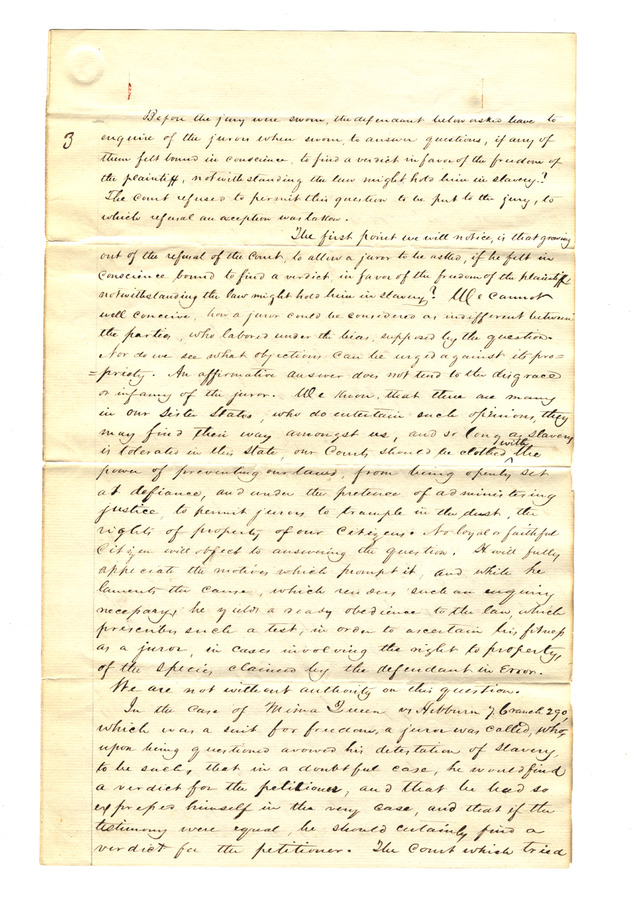 Before the jury were sworn, the defendant below asked leave to
3
enquire of the jurors when sworn, to answer questions, if any of
them felt bound in conscience, to find a verdict in favor of the freedom of
the plaintiff, notwithstanding the law might hold him in slavery?
The Court refused to permit this question to be put to the jury, to
which refusal an exception was taken.
The first point we will notice, is that growing
out of the refusal of the Court, to allow a juror to be asked, if he felt in
conscience bound to find a verdict, in favor of the freedom of the plaintiff
notwithstanding the law might hold him in slavery? We cannot
well conceive, how a juror could be considered as indifferent between
the parties, who labored under the bias, supposed by the question.
Nor do we see what objections can be urged against its pro=
=priety. An affirmative answer does not tend to the disgrace
or infamy of the juror. We know, that there are many
in our Sister States, who do entertain such opinions, they
may find their way amongst us, and so long as slavery
is tolerated in this State, our Courts should be clothed with the
power of preventing our laws, from being openly set
at defiance, and under the pretence of administering
justice, to permit jurors to trample in the dust, the
rights of property of our Citizens. No loyal or faithful
Citizen will object to answering the question. He will fully
appreciate the motives which prompt it, and while he
laments the cause, which renders such an enquiry
necessary, he yields a ready obedience to the law, which
prescribes such a test, in order to ascertain his fitness
as a juror, in cases involving the right to property,
of the species claimed by the defendant in Error.
We are not without authority on this question.
In the case of Mima Queen vs Hebburn 7 Cranch 290,
which was a suit for freedom, a juror was called, who,
upon being questioned avowed his detestation of slavery
to be such, that in a doubtful case, he would find
a verdict for the petitioner, and that he had so
expressed himself in the very case, and that if the
testimony were equal, he should certainly find a
verdict for the petitioner. The Court which tried